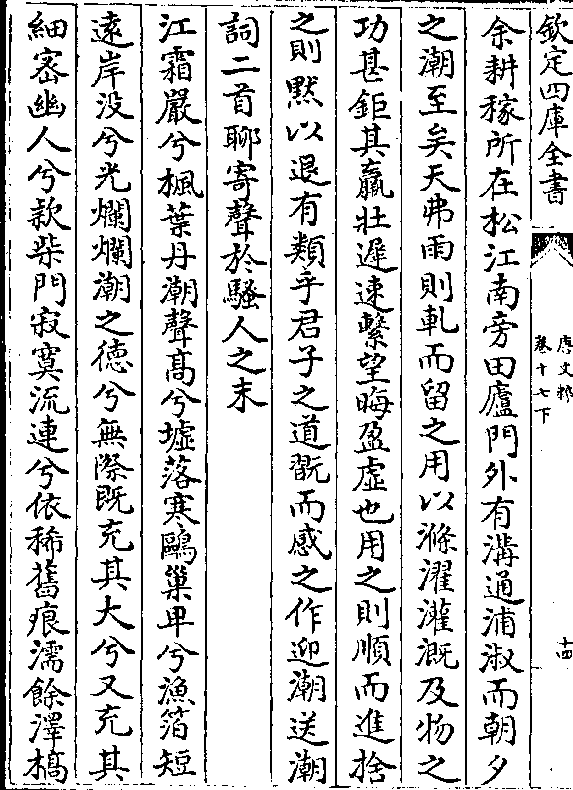 欽定四庫全書
唐文粹
卷十七下
十四
余耕稼所在松江南旁田廬門外有溝通浦淑而朝夕
之潮至矣天弗雨則軋而留之用以滌濯灌溉及物之
功甚鉅其羸壯遲速繫望晦盈虛也用之則順而進捨
之則黙以退有類乎君子之道翫而感之作迎潮送潮
詞二首聊寄聲於騷人之末
江霜嚴兮楓葉丹潮聲髙兮墟落寒鷗巢卑兮漁箔短
遠岸没兮光爛爛潮之德兮無際既充其大兮又充其
細宻幽人兮款柴門寂寞流連兮依稀舊痕濡餘澤槁